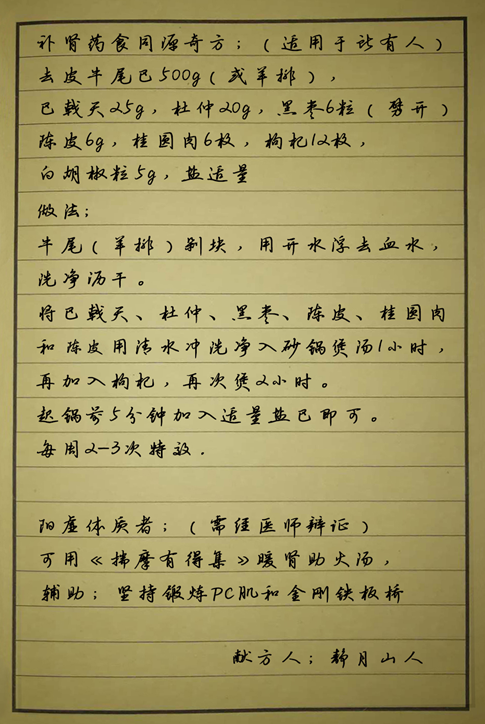 补肾药食同源奇方；（适用于所有人）
去皮牛尾巴500g（或羊排），
巴戟天25g，杜仲20g，黑枣6粒（劈开）
陈皮6g，桂圆肉6枚，枸杞12枚，
白胡椒粒5g，盐适量
做法；
牛尾（羊排）剁块，用开水浮去血水，
洗净沥干。
将巴戟天、杜仲、黑枣、陈皮、桂圆肉
和陈皮用清水冲洗净入砂锅煲汤1小时，
再加入枸杞，再次煲2小时。
起锅前5分钟加入适量盐巴即可。
每周2-3次特效.
阳虚体质者；（需经医师辩证）
可用《揣摩有得集》暖肾助火汤，
辅助；坚持锻炼PC肌和金刚铁板桥
献方人；静月山人